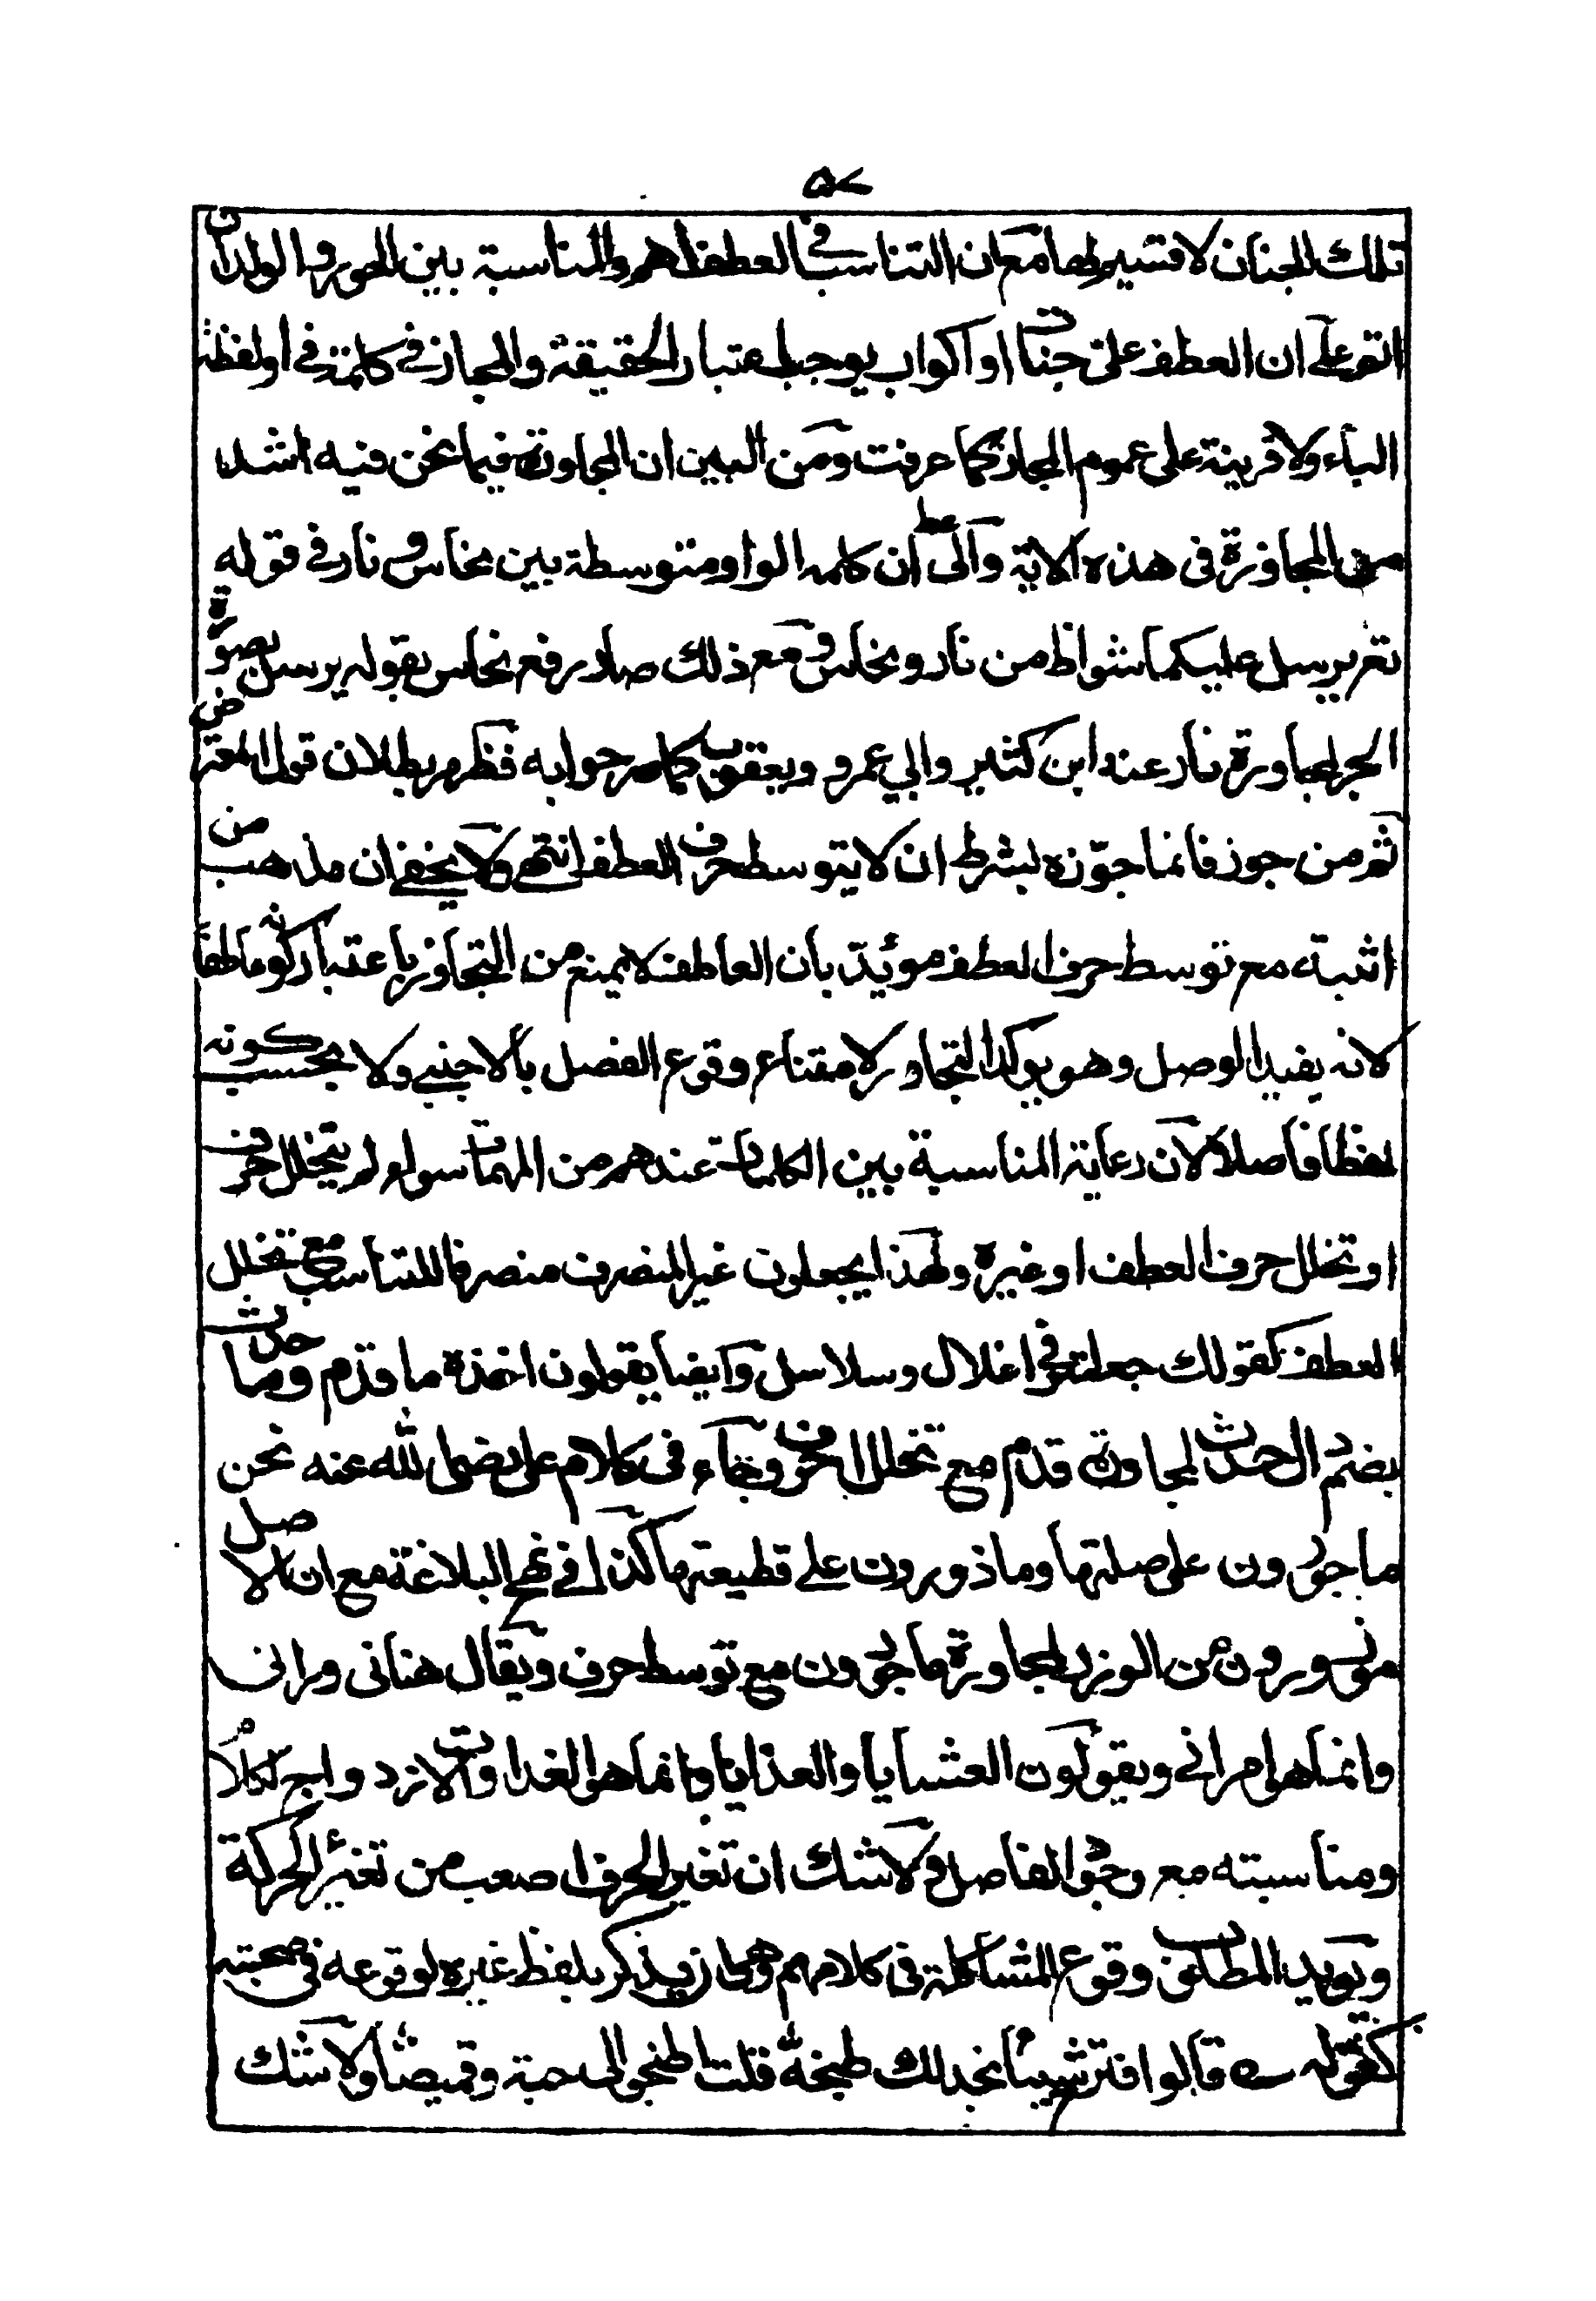 ۵۷
تلك الجنان لا قتيرلها مع ان التناسب في العطف اهم والمناسبة بين الحور والولدان
اتم على ان العطف على جنات او اكواب يوجب اعتبار الحقيقة والمجاز في كلمة في او لفظة
الباء ولا قرينة على عموم المجاز كما عرفت ومن البين ان المجاورة فيما نحن فيه اشد
من المجاورة في هذه الاية والحق ان كلمه الواو متوسطة بين نحاس ونار في قوله
تع يرسل عليكما شواظ من نار ونحاس ومع ذلك صار رفع نحاس بقوله يرسل بصورة
الجر لمجاورة نار عند ابن كثير وابي عمرو ويعقوب كما مر جوابه فظهر بطلان قول المعترض
ثم من جوز فانما جوّزه بشرط ان لا يتوسط حرف العطف انتهى ولا يخفى ان مذهب من
اثبته مع توسط حرف العطف مويد بان العاطف لا يمنع من التجاور باعتبار كونه عاطفا
لانه يفيد الوصل وهو يوكد التجاور لامتناع وقوع الفصل بالاجنبي ولا بحسب كونه
لفظا فاصلا لان رعاية المناسبة بين الكلمات عندهم من المهمات سواء لم يتخلل حرف
او تخلل حرف العطف او غيره ولهذا يجعلون غير المنصرف منصرفا للتناسب مع تخلل
العطف كقولك جعلته في اغلال وسلاسل وايضا يقولون اخذه ما قدم وما حدث
بضم دال حدث لمجاورة قدم مع تخلل الحرف وجاء في كلام علي رضي الله عنه نحن
ماجورون على صلتها وماذورون على قطيعتها كذا في نهج البلاغة مع ان الاصل
موزورون من الوزر لمجاورة ماجورون مع توسط حرف ويقال هناني ومراني
وانما هو امراني ويقولون العشايا والغدايا وانما هو الغداوات لازدواج الكلام
ومناسبته مع وجود الفاصل ولا شك ان تغير الحرف اصعب من تغير الحركة
ويويد المطلوب وقوع المشاكلة في كلامهم وهي ان يذكر بلفظ غيره لوقوعه في صحبته
كقوله ــه قالوا اقترح شيئا نجد لك طبخه قلت اطبخوا لي جبة وقميصا ولا شك